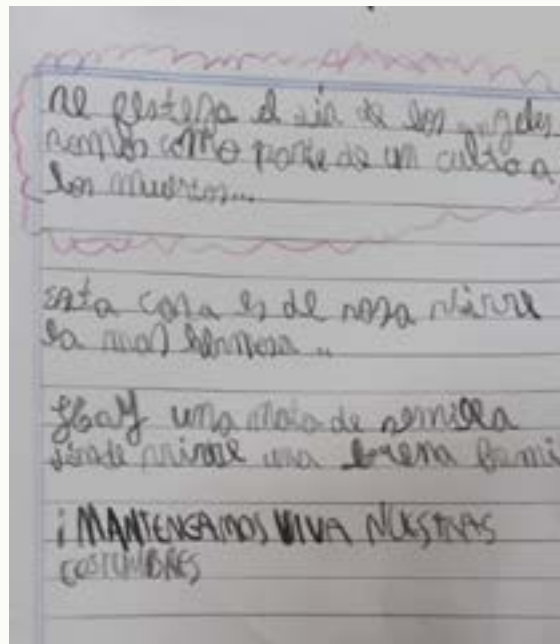 se festeja el día de los angeles
somos como parte de un culto a
los muertos...
esta casa es de rosa vivire
la mas hermosa..
Hay una mata de semilla
donde vivire una buena fami
¡MANTENGAMOS VIVA NUESTRAS
COSTUMBRES